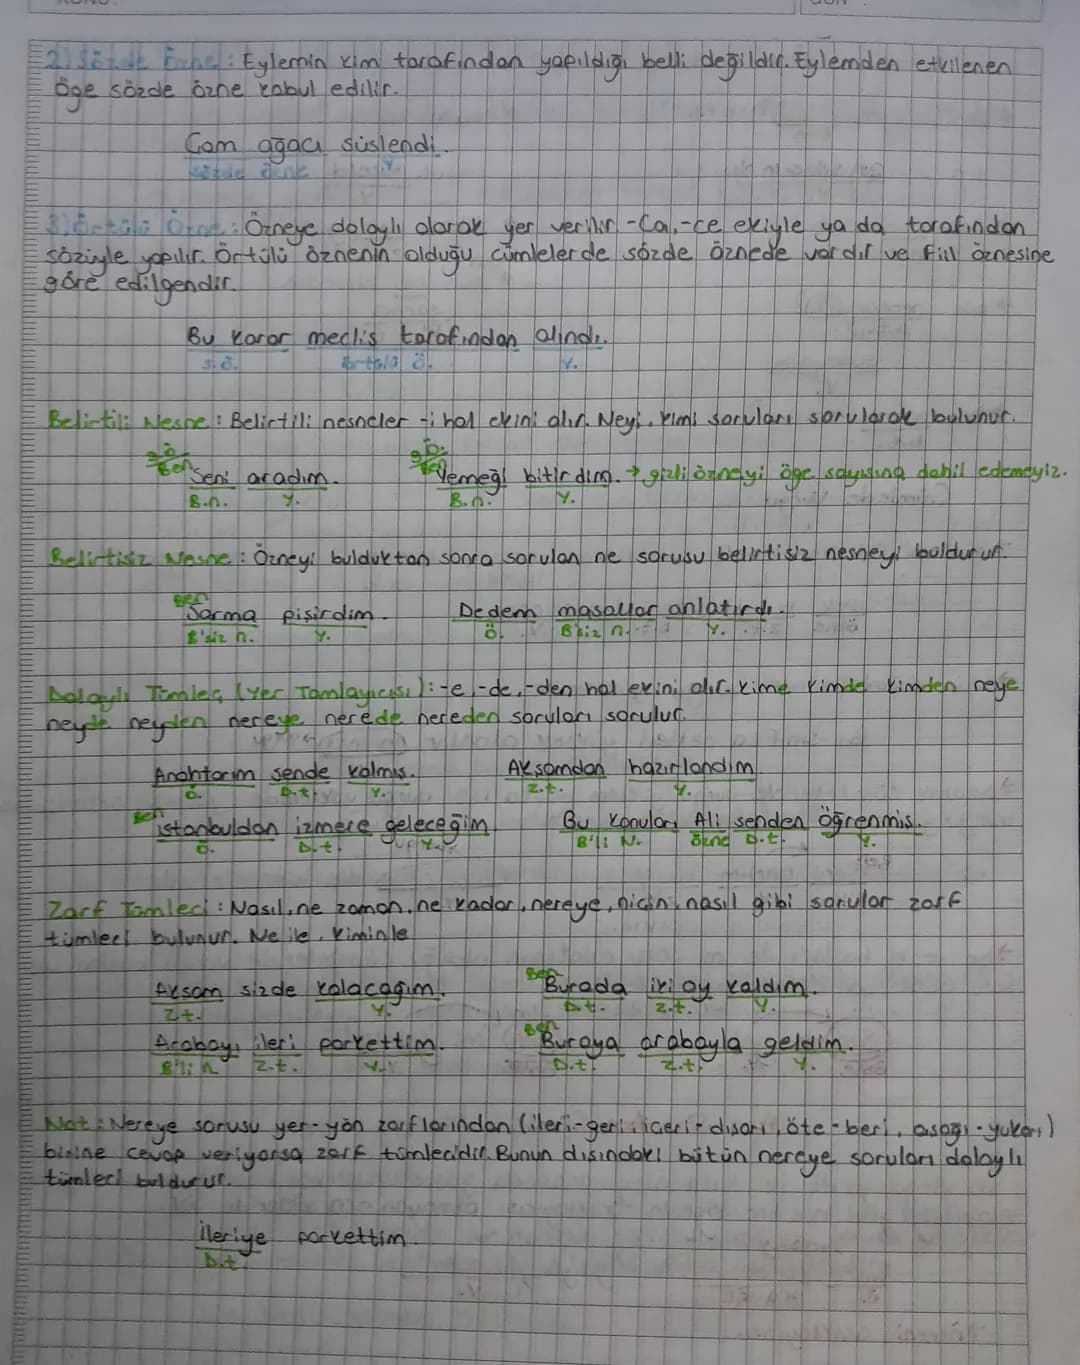 2) Sözde Özne : Eylemin kim tarafından yapıldığı belli değildir. Eylemden etkilenen
öge sözde özne kabul edilir.
Çam ağacı süslendi.
sözde özne Y.
3) Örtülü Özne : Özneye dolaylı olarak yer verilir -Ca, -ce ekiyle ya da tarafından
sözüyle yapılır. Örtülü öznenin olduğu cümlelerde sözde öznede vardır ve fiil öznesine
göre edilgendir.
Bu karar meclis tarafından alındı.
S.Ö. örtülü Ö. Y.
Belirtili Nesne : Belirtili nesneler -i hal ekini alır. Neyi, kimi soruları sorularak bulunur.
g.ö. g.ö.
Ben Seni aradım. Ben Yemeği bitirdim. → gizli özneyi öge sayısına dahil edemeyiz.
B.n. Y. B.n. Y.
Belirtisiz Nesne : Özneyi bulduktan sonra sorulan ne sorusu belirtisiz nesneyi buldurur.
Ben Sarma pişirdim. Dedem masallar anlatırdı.
B'siz n. Y. Ö. B'siz n. Y.
Dolaylı Tümleç (Yer Tamlayıcısı) : -e, -de, -den hal ekini alır. kime kimde kimden neye
neyde neyden nereye nerede nereden soruları sorulur.
Anahtarım sende kalmış. Akşamdan hazırlandım
Ö. D.t. Y. Z.t. Y.
Ben istanbuldan izmere geleceğim Bu konuları Ali senden öğrenmiş.
Ö. D.t. Y. B'li N. Özne D.t. Y.
Zarf Tümleci : Nasıl, ne zaman, ne kadar, nereye, niçin, nasıl gibi sorular zarf
tümleci bulunur. Ne ile, kiminle
Akşam sizde kalacağım. Ben Burada iki ay kaldım.
Z.t. Y. D.t. Z.t. Y.
Arabayı ileri parkettim. Ben Buraya arabayla geldim.
B'li n Z.t. Y. D.t. Z.t. Y.
Not : Nereye sorusu yer-yön zarflarından (ileri-geri, içeri-dışarı, öte-beri, aşağı-yukarı)
birine cevap veriyorsa zarf tümlecidir. Bunun dışındaki bütün nereye soruları dolaylı
tümleci buldurur.
İleriye parkettim.
D.t.